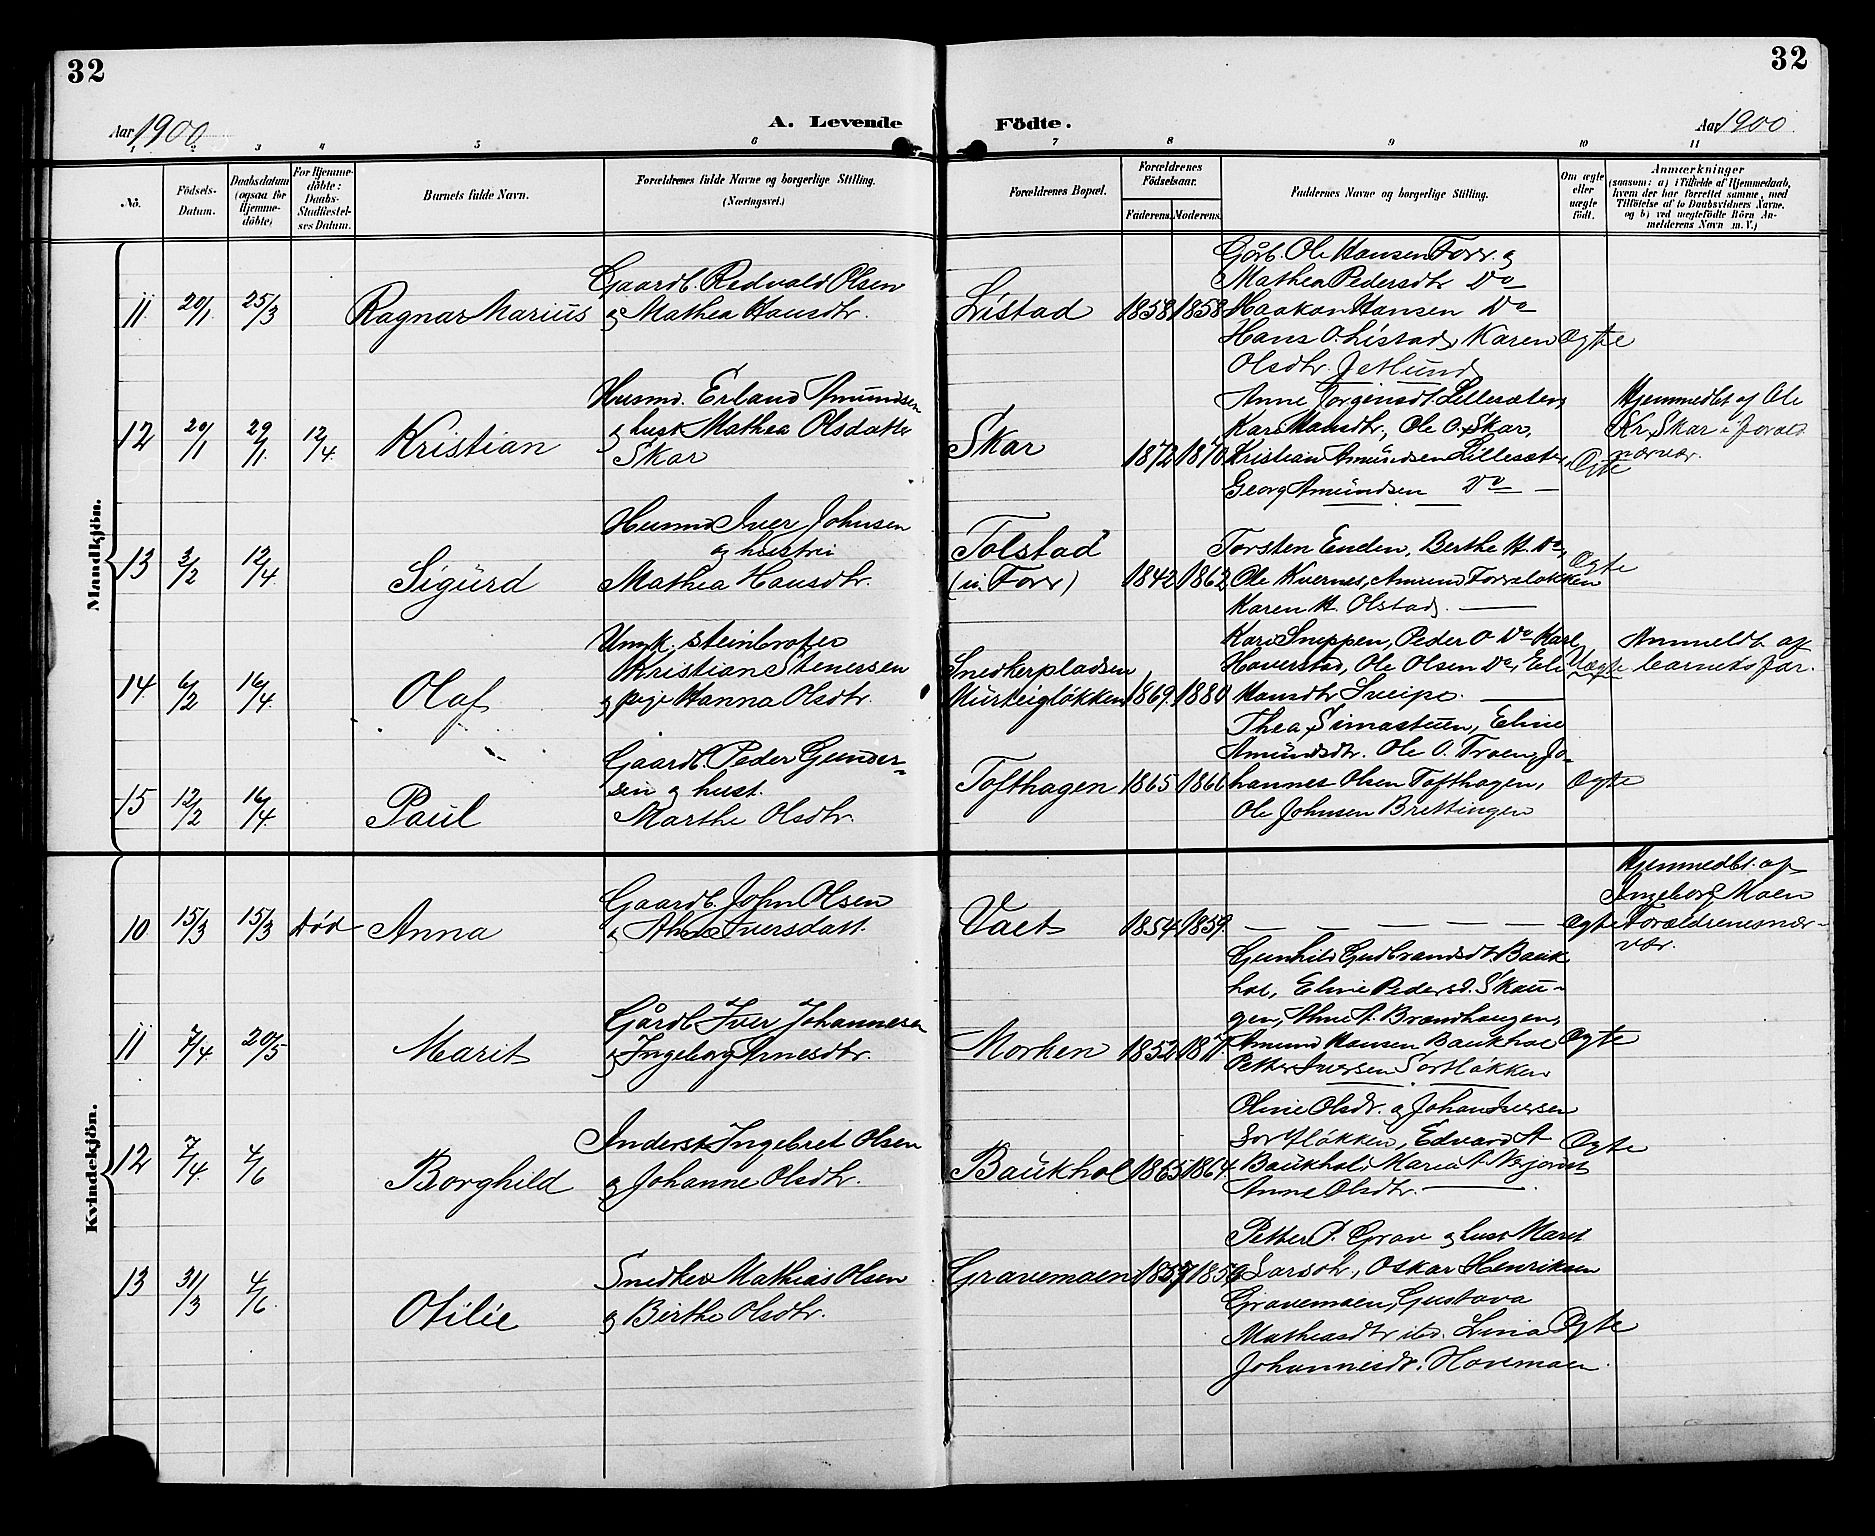 32
Aar 1900
A. Levende
1 2 3 4 5 6
No.
Födsels-
Datum.
Daabsdatum
(ogsaa for
Hjemme-
döbte)
For Hjemme-
döbte:
Daabs-
Stadfæstel-
ses Datum.
Barnets fulde Navn.
Forældrenes fulde Navne og borgerlige Stilling.
(Næringsvei.)
Mandkjön.
11 20/1 25/3 Ragnar Marius
Gaardb. Redvald Olsen
og Mathea Hansdtr.
12 20/1 29/1 12/4 Kristian
Husmd. Erland Amundsen
og hust Mathea Olsdatter
Skar
13 3/2 12/4 Sigurd
Husmd Iver Johnsen
og hustru
Mathea Hansdtr.
14 6/2 16/4 Olaf
Ungk. steinbryter
Kristian Stenersen
og pige Hanna Olsdtr.
15 12/2 16/4 Paul
Gaardb. Peder Gunder-
sen og hust.
Marthe Olsdtr.
Kvindekjön.
10 15/3 15/3 død Anna
Gaardb. John Olsen
og Iversdatt.
11 7/4 20/5 Marit
Gårdb. Iver Johannesen
og Ingeborg Arnesdtr.
12 7/4 4/6 Borghild
Inderst Ingebret Olsen
og Johanne Olsdtr.
13 31/3 4/6 Otilie
Snedker Mathias Olsen
og Birthe Olsdtr.
32
Födte.
Aar 1900
7 8 9 10 11
Forældrenes Bopæl.
Forældrenes
Födselsaar.
Faderens.
Moderens.
Faddernes Navne og borgerlige Stilling.
Om ægte
eller
uægte
födt.
Anmærkninger
(saasom: a) i Tilfælde af Hjemmedaab,
hvem der har forrettet samme, med
Tilföielse af to Daabsvidners Navne.
og b) ved uægtefödte Börn An-
melderens Navn m. V.)
Listad 1858 1858
Gårb. Ole Hansen Forr og
Mathea Pedersdtr Do
Haakon Hansen Do
Hans O. Listad, Karen
Olsdtr. Jetlund
Ægte
Skar 1872 1870
Anne Jørgensdt. Lillesæter,
Kari Hansdtr, Ole O. Skar,
Kristian Amundsen Lillesæter,
Georg Amundsen Do
Ægte
Hjemmedbt af Ole
Kr. Skar i foræld
nærvær.
Tolstad
(in Forr) 1842 1862
Torsten Enden, Berthe H. Do,
Ole Kvernes, Amund Forrsløkken
Karen H. Olstad.
Ægte
Snedkerpladsen
1869. 1880
Kari Snippen, Peder O Do Karl
Haverstad, Ole Olsen Do, Eli
Hansdtr Sveipe.
Uægte
Anmeldt af
barnets far.
Tofthagen 1865 1866
Thea Simastuen, Eline
Amundsdtr. Ole O. Troen, Jo-
hannes Olsen Tofthagen,
Ole Johnsen Brettingen
Ægte
Vaet 1854 1859
Ægte
Hjemmedbt. af
Ingeborg Moen
i Forældrenes nær-
vær.
Morken 1852 1871
Gunhild Gudbrandsdt. Bauk-
hol, Eline Pedersd. Skau-
gen, Ahne A. Brandhaugen,
Amund Hansen Baukhol
Petter Iversen Sortløkken
Ægte
Baukhol 1865 1864.
Oline Olsdr. og Johan Iversen
Sortløkken, Edvard A
Baukhol, Maria A.
Anne Olsdtr.
Ægte
Gravemoen 1857 1859
Petter P. Grav og hust Maret
Larsdtr, Oskar Henriksen
Gravemoen, Gustava
Mathiasdtr ibd. Lina
Johannesdr. Hovemoen.
Ægte